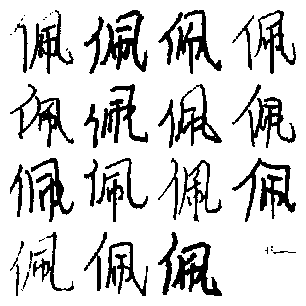 佩佩佩佩
佩佩佩佩
佩佩佩佩
佩佩佩